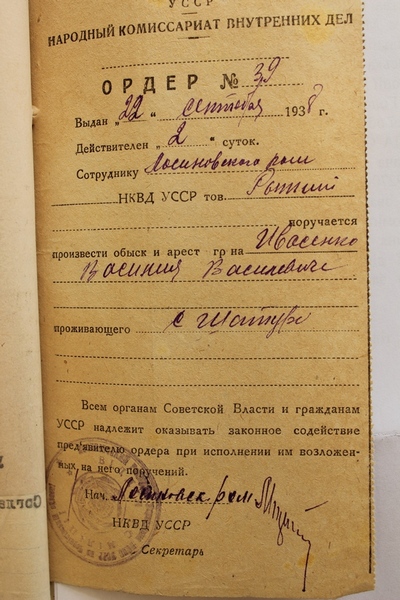 УССР
НАРОДНЫЙ КОМИССАРИАТ ВНУТРЕННИХ ДЕЛ
ОРДЕР № 39
Выдан „22“ сентября 1938 г.
Действителен „2“ суток.
Сотруднику Лосиновского ром
НКВД УССР тов.
поручается
произвести обыск и арест гр на Ивасенко
Василия Василевича
проживающего с Шатура
Всем органам Советской Власти и гражданам
УССР надлежит оказывать законное содействие
пред'явителю ордера при исполнении им возложен-
ных на него поручений.
Нач. Лосиновск ром
НКВД УССР
Секретарь